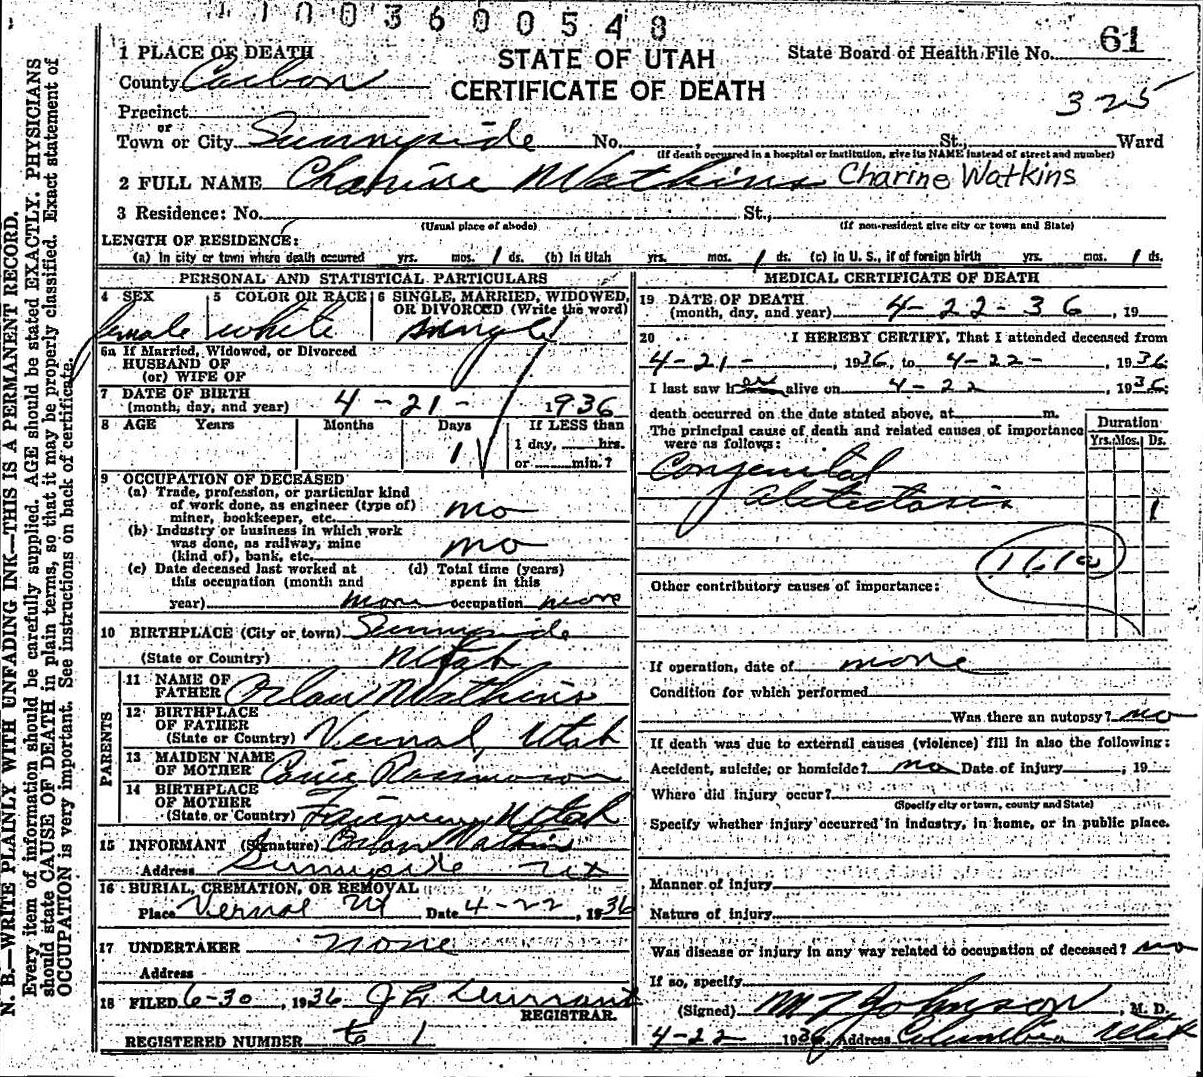 1003600548
1 PLACE OF DEATH
STATE OF UTAH
State Board of Health File No. 61
County Carbon
CERTIFICATE OF DEATH
325
Precinct
or
Town or City Sunnyside No. St., Ward
(If death occurred in a hospital or institution, give its NAME instead of street and number)
2 FULL NAME Charine Watkins Charine Watkins
3 Residence: No. St.,
(Usual place of abode) (If non-resident give city or town and State)
LENGTH OF RESIDENCE:
(a) In city or town where death occurred yrs. mos. 1 ds. (b) In Utah yrs. mos. 1 ds. (c) In U. S., if of foreign birth yrs. mos. 1 ds.
PERSONAL AND STATISTICAL PARTICULARS
4 SEX 5 COLOR OR RACE 6 SINGLE, MARRIED, WIDOWED,
OR DIVORCED (Write the word)
female white single
6a If Married, Widowed, or Divorced
HUSBAND OF
(or) WIFE OF
7 DATE OF BIRTH
(month, day, and year) 4-21- 1936
8 AGE Years Months Days If LESS than
1 1 day, hrs.
or min.?
9 OCCUPATION OF DECEASED
(a) Trade, profession, or particular kind
of work done, as engineer (type of)
miner, bookkeeper, etc. no
(b) Industry or business in which work
was done, as railway, mine
(kind of), bank, etc. no
(c) Date deceased last worked at (d) Total time (years)
this occupation (month and spent in this
year) none occupation none
10 BIRTHPLACE (City or town) Sunnyside
(State or Country) Utah
PARENTS
11 NAME OF
FATHER Orlan Watkins
12 BIRTHPLACE
OF FATHER
(State or Country) Vernal, Utah
13 MAIDEN NAME
OF MOTHER
14 BIRTHPLACE
OF MOTHER
(State or Country) Fairview Utah
15 INFORMANT (Signature) Orlan Watkins
Address Sunnyside Ut
16 BURIAL, CREMATION, OR REMOVAL
Place Vernal Ut Date 4-22, 1936
17 UNDERTAKER none
Address
18 FILED 6-30, 1936 J L Durrant
REGISTRAR.
REGISTERED NUMBER 1
MEDICAL CERTIFICATE OF DEATH
19 DATE OF DEATH
(month, day, and year) 4-22-36, 19
20 I HEREBY CERTIFY, That I attended deceased from
4-21-, 1936, to 4-22-, 1936
I last saw her alive on 4-22, 1936
death occurred on the date stated above, at m.
The principal cause of death and related causes of importance
were as follows:
Duration
Yrs. Mos. Ds.
Congenital
Atelectasis 1
161a
Other contributory causes of importance:
If operation, date of none
Condition for which performed
Was there an autopsy? no
If death was due to external causes (violence) fill in also the following:
Accident, suicide, or homicide? no Date of injury , 19
Where did injury occur?
(Specify city or town, county and State)
Specify whether injury occurred in industry, in home, or in public place.
Manner of injury
Nature of injury
Was disease or injury in any way related to occupation of deceased? no
If so, specify
(Signed) M T Johnson, M. D.
4-22 1936 Address Columbia Utah
N. B.—WRITE PLAINLY WITH UNFADING INK—THIS IS A PERMANENT RECORD.
Every item of information should be carefully supplied. AGE should be stated EXACTLY. PHYSICIANS
should state CAUSE OF DEATH in plain terms, so that it may be properly classified. Exact statement of
OCCUPATION is very important. See instructions on back of certificate.